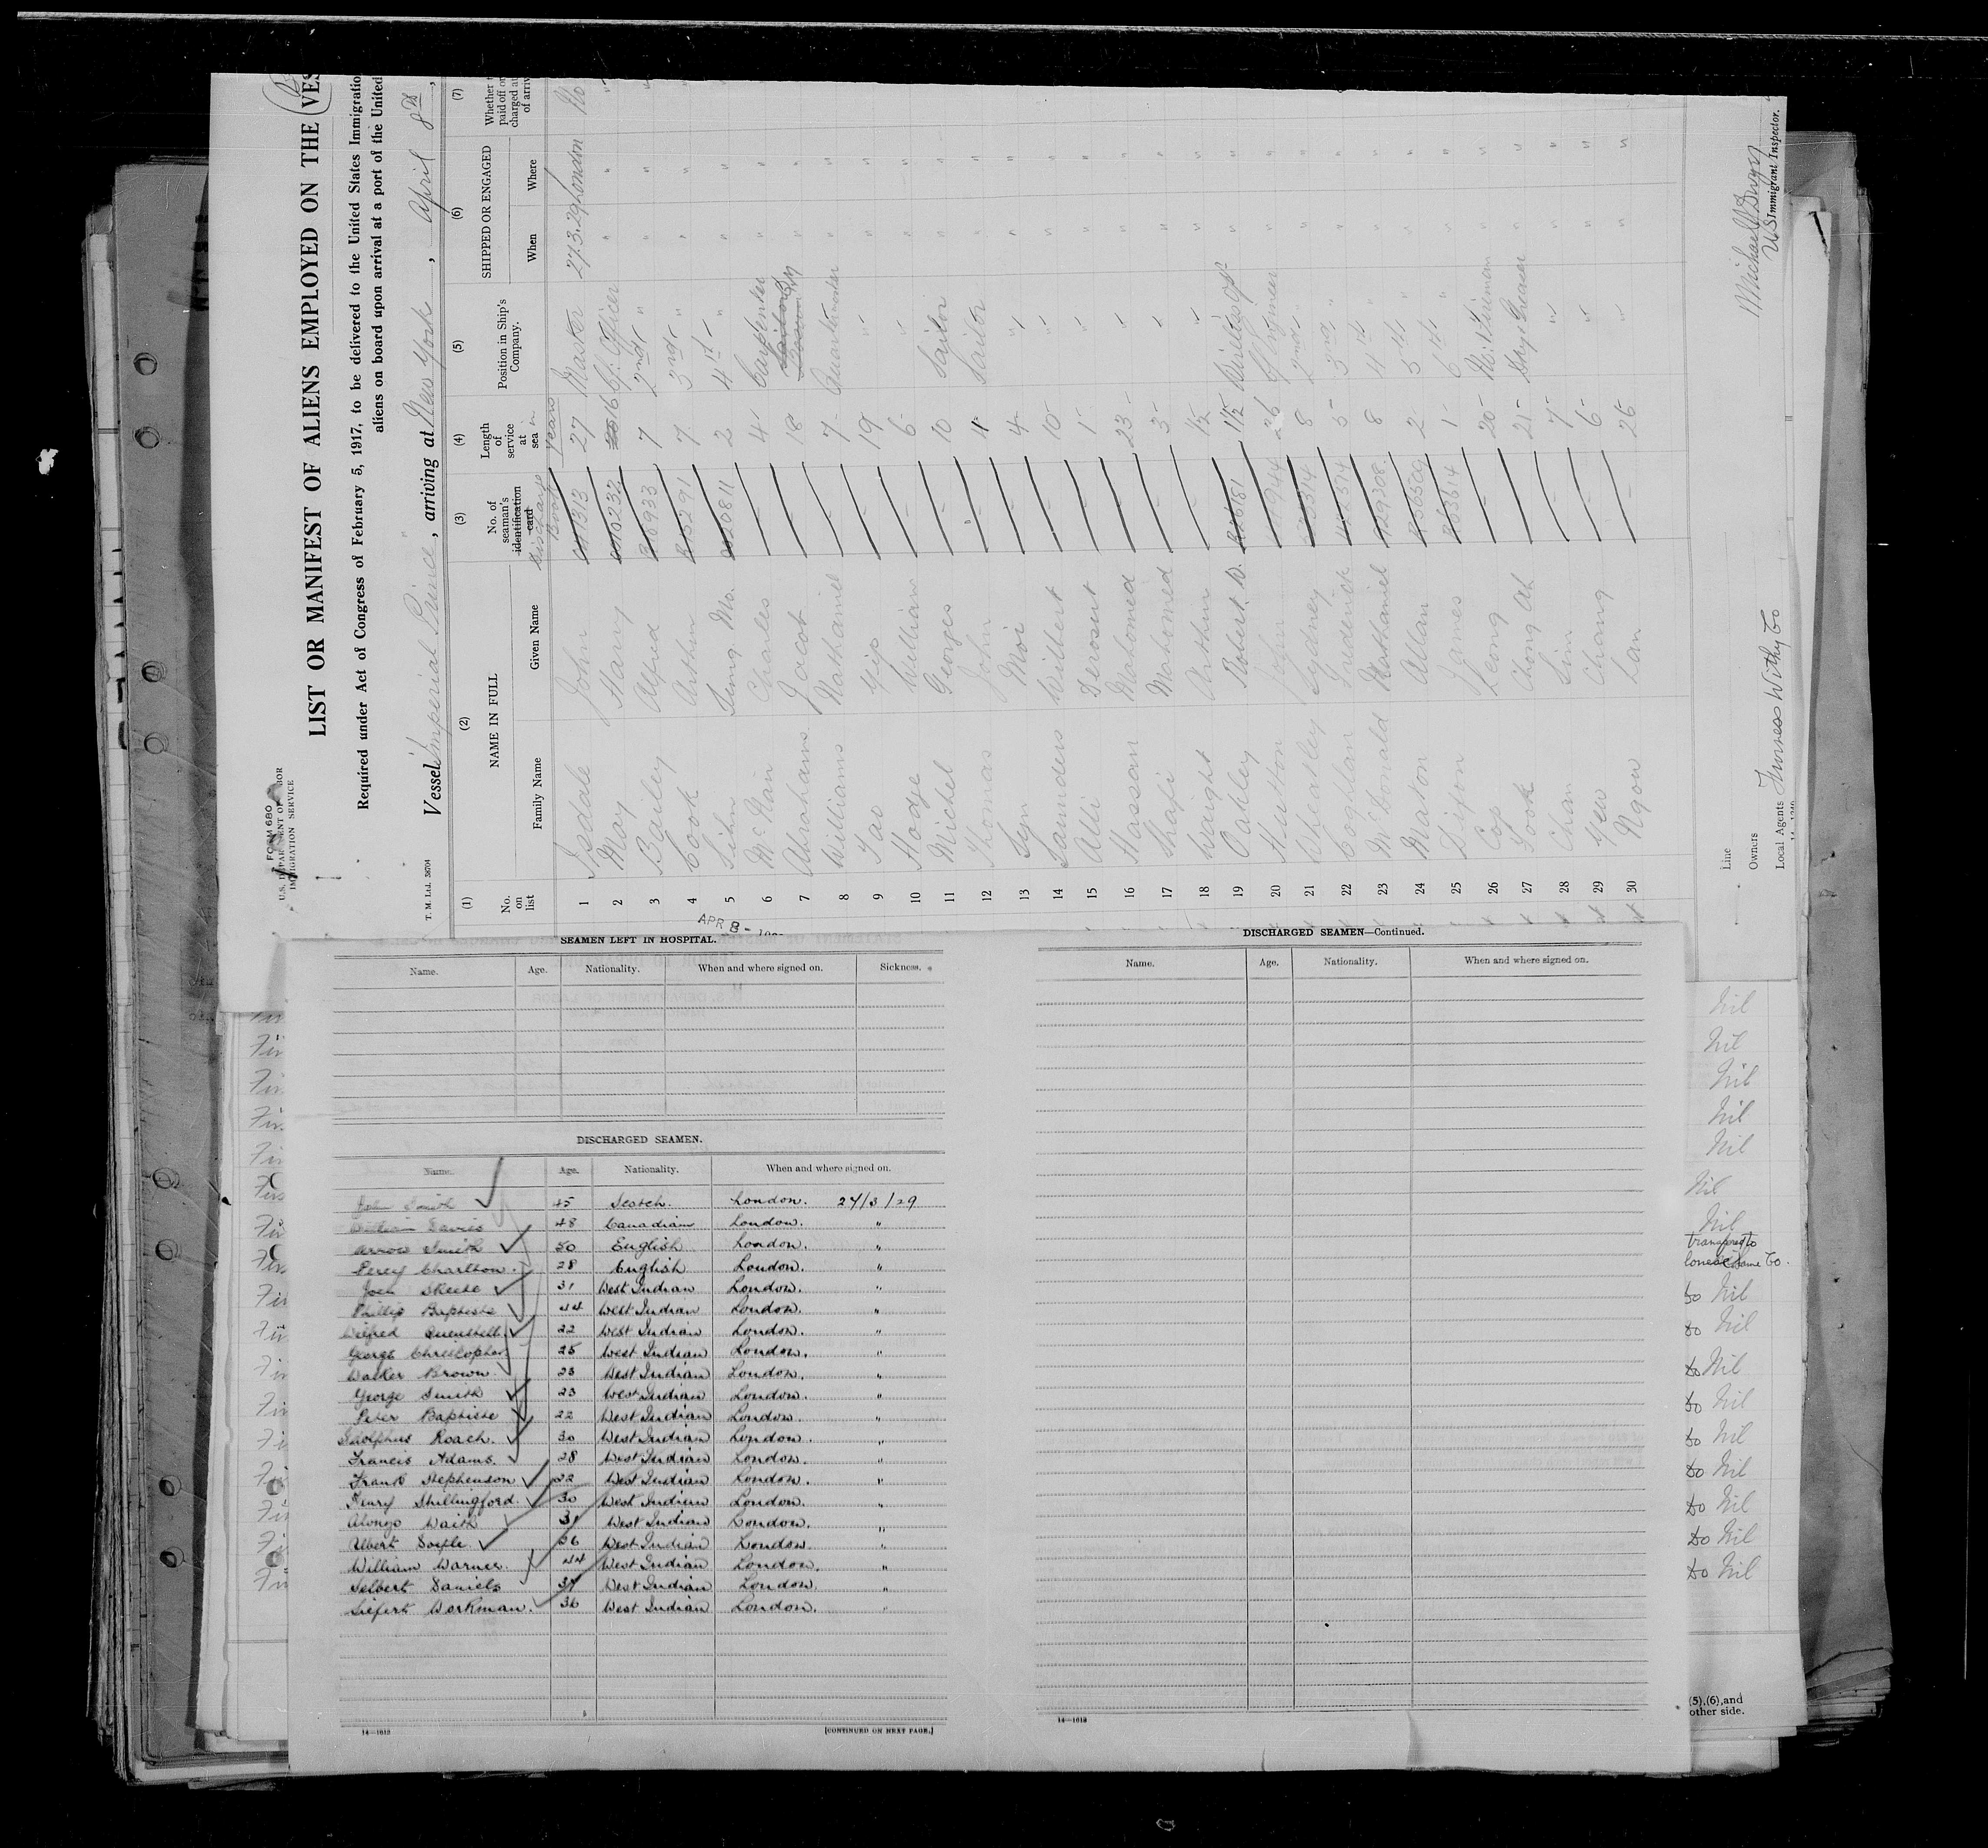 FORM 680
U.S. DEPARTMENT OF LABOR
IMMIGRATION SERVICE
LIST OR MANIFEST OF ALIENS EMPLOYED ON THE VES
Required under Act of Congress of February 5, 1917, to be delivered to the United States Immigratio
aliens on board upon arrival at a port of the United
T. M. Ltd. 38704
Vessel "Imperial Prince", arriving at New York, April 8th,
(1) (2) (3) (4) (5) (6) (7)
No. on list NAME IN FULL No. of seaman's identification card Length of service at sea Position in Ship's Company. SHIPPED OR ENGAGED
Family Name Given Name Discharge Book in Years When Where
1 Isdale John 27 Master 27.3.29 London No
2 May Harry 16 Cf: Officer " "
3 Bailey Alfred 7 2nd " " "
4 Cook Arthur 7 3rd " " "
5 2 4th " " "
6 McNair Charles 4 Carpenter " "
7 Abrahams Jacob 8 " "
8 Williams Nathaniel 7 Quartermaster " "
9 Tao Yip 19 " " "
10 Hodge William 6 " " "
11 Michel Georges 10 Sailor " "
12 Thomas John Sailor " "
13 Moi 4 " " "
14 Saunders Wilbert 10 " " "
15 Alli 1 " " "
16 Hassan Mahomed 23 " " "
17 Shafi Mahomed 3 " " "
18 Waight Arthur " " "
19 Oakley Robert. W. Wireless Op. " "
20 Hutton John 26 Cf Engineer " "
21 Wheatley Sydney 8 2nd " " "
22 Coghlan Frederick 5 3rd " " "
23 McDonald Nathaniel 8 4th " " "
24 Maton Allan 2 5th " " "
25 Dixon James 1 6th " " "
26 Leong 20 No: 1 Fireman " "
27 Fook Chong Ah 21 Greaser " "
28 Chan 7 " " "
29 Yew Chang 6 " " "
30 Ngow Lan 25 " " "
Line
Owners
Local Agents Furness Withy Co
US Immigrant Inspector.
APR 8 -
SEAMEN LEFT IN HOSPITAL.
Name. Age. Nationality. When and where signed on. Sickness.
DISCHARGED SEAMEN.
Name. Age. Nationality. When and where signed on.
John Smith 45 Scotch. London. 27/3/29
William Davies 48 Canadian London. "
Arrow Smith 50 English London. "
Percy Charlton. 28 English London. "
John Skeete 31 West Indian London. "
Phillip Baptiste 44 West Indian London. "
Wilfred 22 West Indian London. "
George Christopher 25 West Indian London. "
Walker Brown. 23 West Indian London. "
George Smith 23 West Indian London. "
Peter Baptiste 22 West Indian London. "
Adolphus Roach. 30 West Indian London. "
Francis Adams. 28 West Indian London. "
Frank Stephenson 22 West Indian London. "
Henry Shillingford. 30 West Indian London. "
Alonzo Waith 31 West Indian London. "
Albert 36 West Indian London. "
William Warner. 44 West Indian London. "
Selbert Daniels West Indian London. "
Siefert Workman. 36 West Indian London. "
14—1612 [CONTINUED ON NEXT PAGE.]
DISCHARGED SEAMEN—Continued.
Name. Age. Nationality. When and where signed on.
14—1612
Nil
Nil
Nil
Nil
Nil
Nil
Nil
do Nil
do Nil
do Nil
do Nil
do Nil
do Nil
do Nil
do Nil
do Nil
(5),(6),and
other side.